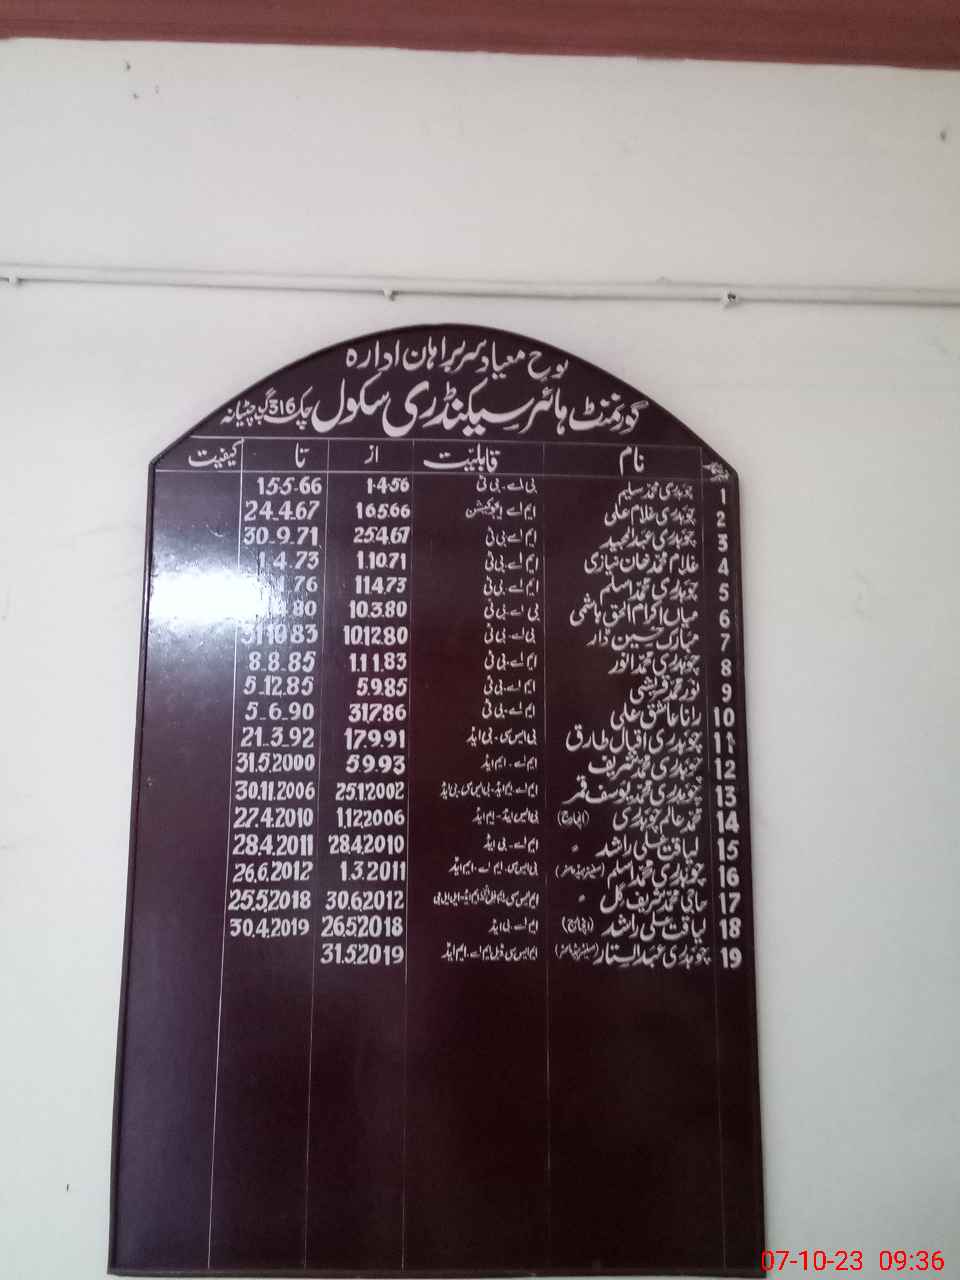 لوح معیاد سربراہان ادارہ
گورنمنٹ ہائر سیکنڈری سکول چک 316 گ ب جٹیانہ
نام قابلیت از تا کیفیت
1 چوہدری محمد سلیم بی اے۔بی ٹی 1.4.56 15.5.66
2 چوہدری غلام علی ایم اے ایجوکیشن 16.5.66 24.4.67
3 چوہدری عبدالمجید ایم اے بی ٹی 25.4.67 30.9.71
4 غلام محمد خان نیازی ایم اے۔بی ٹی 1.10.71 4.73
5 چوہدری محمد اسلم ایم اے۔بی ٹی 11.4.73 76
6 میاں اکرام الحق ہاشمی بی اے بی ٹی 10.3.80 80
7 مبارک تحسین ڈار بی اے۔بی ٹی 10.12.80 31.10.83
8 چوہدری محمد انور ایم اے۔بی ٹی 1.11.83 8.8.85
9 نور محمد قریشی ایم اے۔بی ٹی 5.9.85 5.12.85
10 رانا عاشق علی ایم اے۔بی ٹی 31.7.86 5.6.90
11 چوہدری اقبال طارق بی ایس سی۔بی ایڈ 17.9.91 21.3.92
12 چوہدری محمد شریف ایم اے۔ایم ایڈ 5.9.93 31.5.2000
13 چوہدری محمد یوسف قمر ایم اے۔ایم ایڈ۔بی ایس سی۔بی ایڈ 25.1.2002 30.11.2006
14 محمد عالم چوہدری (انچارج) ایم ایڈ 1.12.2006 27.4.2010
15 لیاقت علی راشد " ایم اے۔بی ایڈ 28.4.2010 28.4.2011
16 چوہدری محمد اسلم (سینئر ہیڈماسٹر) بی ایس سی۔ایم اے۔ایم ایڈ 1.3.2011 26.6.2012
17 حاجی محمد شریف گل " 30.6.2012 25.5.2018
18 لیاقت علی راشد (انچارج) ایم اے۔بی ایڈ 26.5.2018 30.4.2019
19 چوہدری عبدالستار (سینئر ہیڈماسٹر) ایم ایس سی ڈبل ایم اے۔ایم ایڈ 31.5.2019
07-10-23 09:36